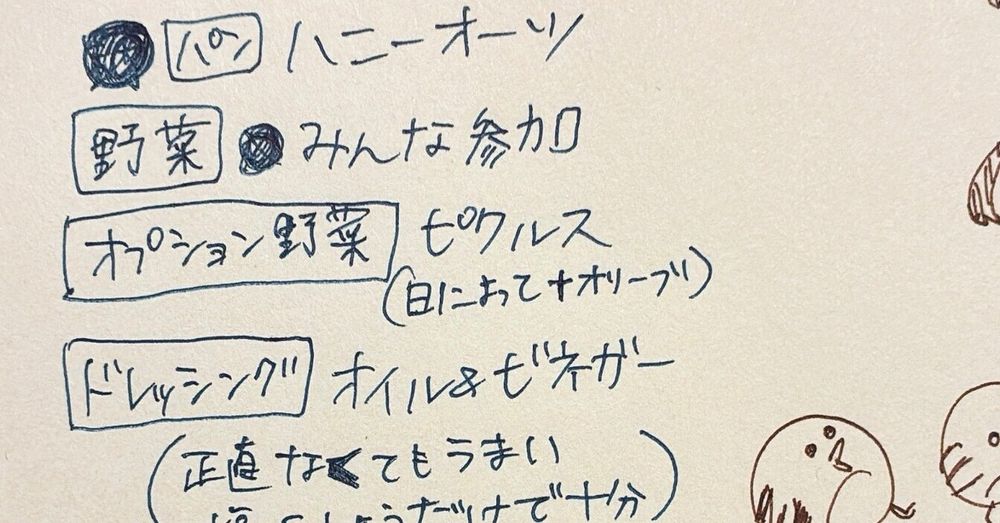 パン ハニーオーツ
野菜 みんな参加
オプション野菜 ピクルス
(日によって+オリーブ)
ドレッシング オイル&ビネガー
(正直なくてもうまい
塩こしょうだけで十分)